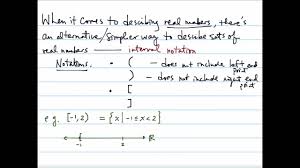 When it comes to describing real numbers, there's
an alternative/simpler way to describe sets of
real numbers —— interval notation
Notations. • ( — does not include left end point
• ) — does not include right end point
• [
• ]
e.g. [-1,2) = {x | -1≤x<2}
-1 2 R